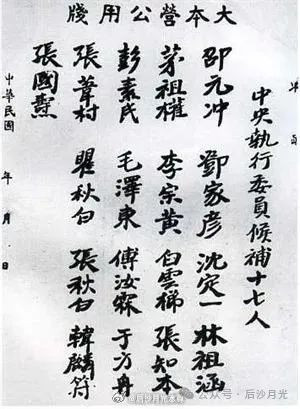 大本營公用牋
中央執行委員候補十七人
邵元冲 鄧家彦 沈定一 林祖涵
茅祖權 李宗黃 白雲梯 張知本
彭素民 毛澤東 傅汝霖 于方舟
張葦村 瞿秋白 張秋白 韓麟符
張國燾
中華民國 年 月 日
公众号 · 后沙月光
@后沙月光本尊